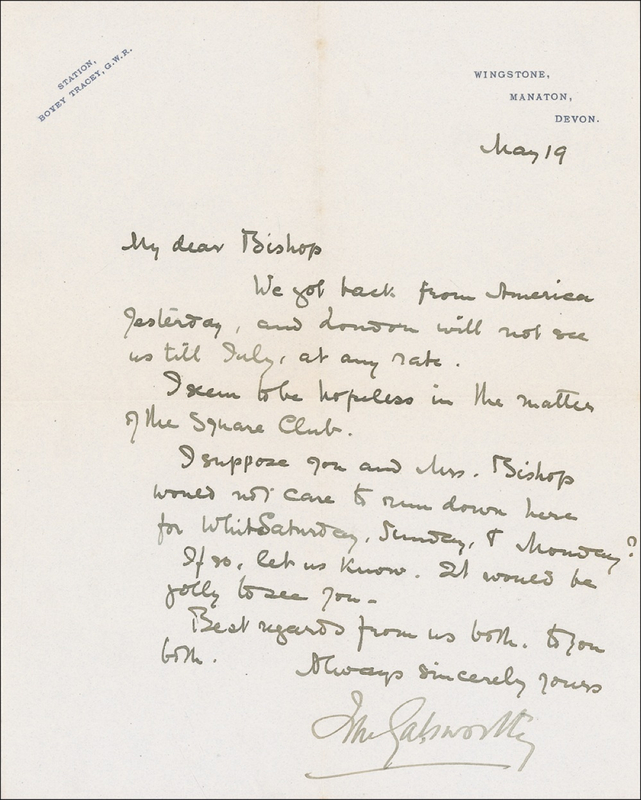 STATION,
BOVEY TRACEY, G.W.R.
WINGSTONE,
MANATON,
DEVON.
May 19
My dear Bishop
We got back from America
yesterday, and London will not see
us till July, at any rate.
I seem to be hopeless in the matter
of the Square Club.
I suppose you and Mrs. Bishop
would not care to run down here
for Whit Saturday, Sunday, & Monday?
If so, let us know. It would be
jolly to see you -
Best regards from us both, to you
both.
Always sincerely yours
John Galsworthy